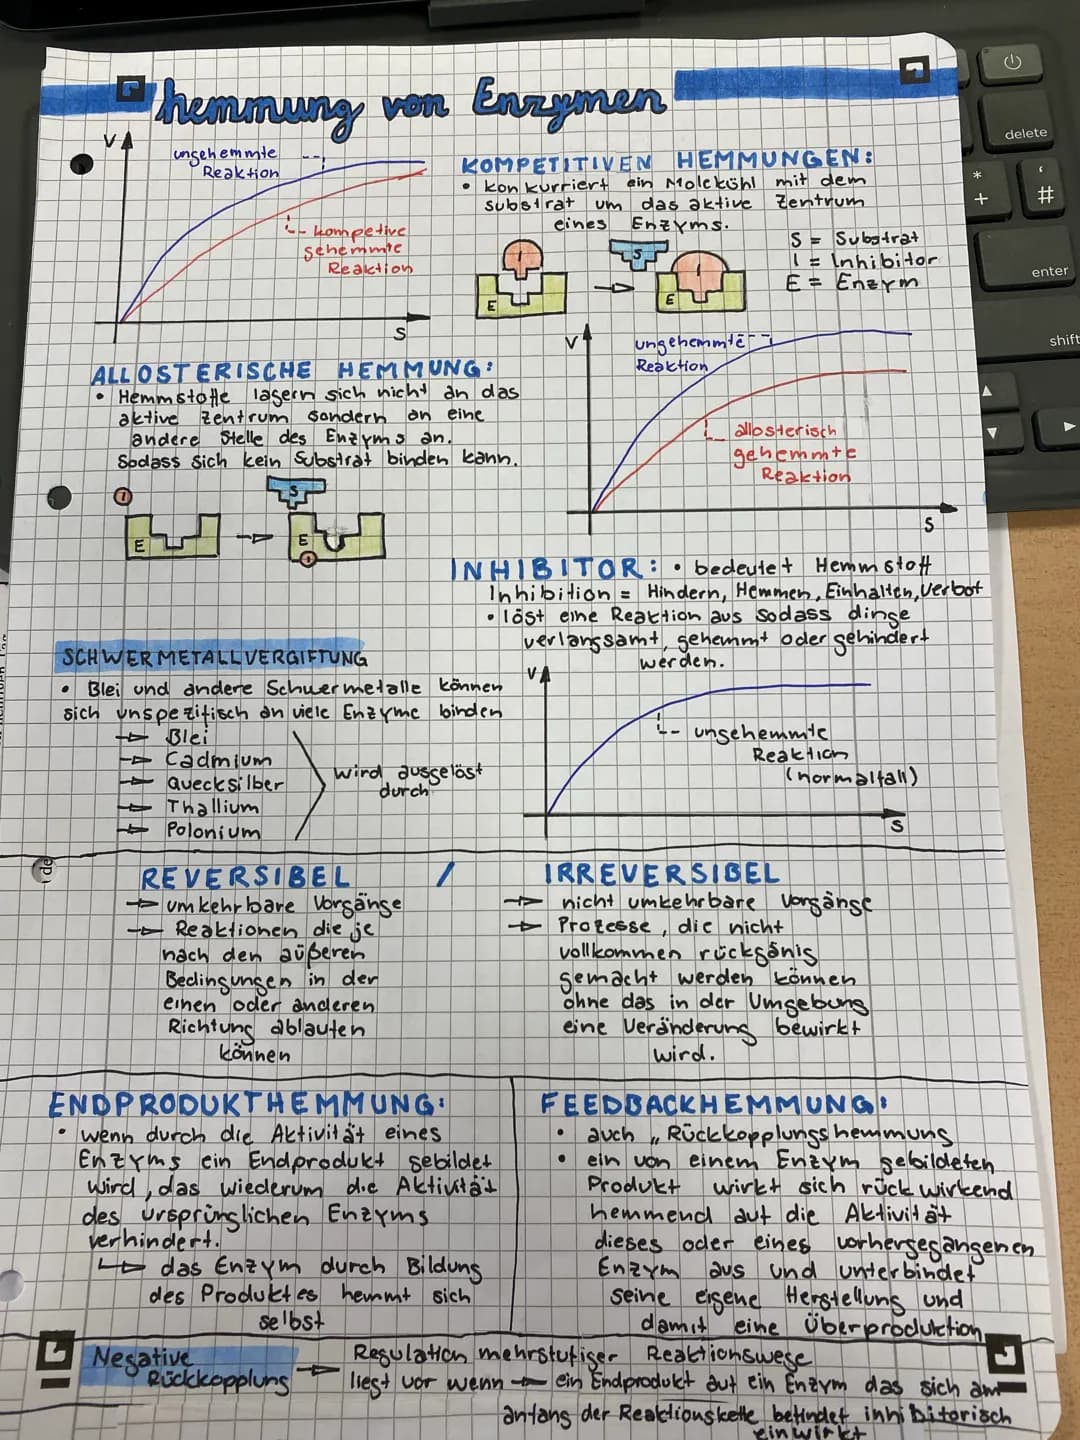 hemmung von Enzymen
V
ungehemmte
Reaktion
kompetive
gehemmte
Reaktion
S
KOMPETITIVEN HEMMUNGEN:
• konkurriert ein Moleckühl mit dem
substrat um das aktive Zentrum
eines Enzyms.
S = Substrat
I = Inhibitor
E = Enzym
I
E
S
I
E
ALLOSTERISCHE HEMMUNG:
• Hemmstoffe lagern sich nicht an das
aktive Zentrum sondern an eine
andere Stelle des Enzyms an.
Sodass sich kein Substrat binden kann.
I
E
S
E
I
V
ungehemmte
Reaktion
allosterisch
gehemmte
Reaktion
S
INHIBITOR: • bedeutet Hemmstoff
Inhibition = Hindern, Hemmen, Einhalten, Verbot
• löst eine Reaktion aus sodass dinge
verlangsamt, gehemmt oder gehindert
werden.
SCHWERMETALLVERGIFTUNG
• Blei und andere Schwermetalle können
sich unspezifisch an viele Enzyme binden
→ Blei
→ Cadmium
→ Quecksilber
→ Thallium
→ Polonium
wird ausgelöst
durch
V
ungehemmte
Reaktion
(normalfall)
S
REVERSIBEL / IRREVERSIBEL
→ umkehrbare Vorgänge
→ Reaktionen die je
nach den äußeren
Bedingungen in der
einen oder anderen
Richtung ablaufen
können
→ nicht umkehrbare Vorgänge
→ Prozesse, die nicht
vollkommen rückgänis
gemacht werden können
ohne das in der Umgebung
eine Veränderung bewirkt
wird.
ENDPRODUKTHEMMUNG:
• wenn durch die Aktivität eines
Enzyms ein Endprodukt gebildet
wird, das wiederum die Aktivität
des ursprünglichen Enzyms
verhindert.
↳ das Enzym durch Bildung
des Produktes hemmt sich
selbst
FEEDBACKHEMMUNG:
• auch „Rückkopplungshemmung
• ein von einem Enzym gebildeten
Produkt wirkt sich rückwirkend
hemmend auf die Aktivität
dieses oder eines vorhergegangenen
Enzym aus und unterbindet
seine eigene Herstellung und
damit eine Überproduktion
Negative
Rückkopplung
→ Regulation mehrstufiger Reaktionswege
liegt vor wenn → ein Endprodukt auf ein Enzym das sich am
anfang der Reaktionskette befindet inhibitorisch
einwirkt
delete
*
+
‘
#
enter
shift